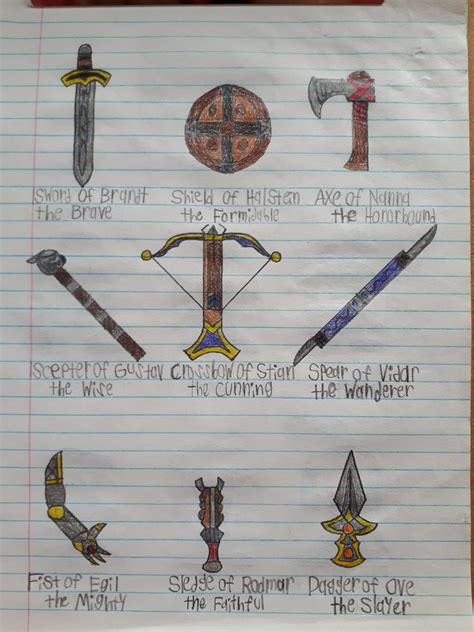 Sword of Brandt Shield of Halstein Axe of Nanna
the Brave the Formidable the Honorbound
Scepter of Gustav Crossbow of Stian Spear of Viddr
the Wise the Cunning the Wanderer
Fist of Egil Sledge of Rodmar Dagger of Ove
the Mighty the Faithful the Slayer